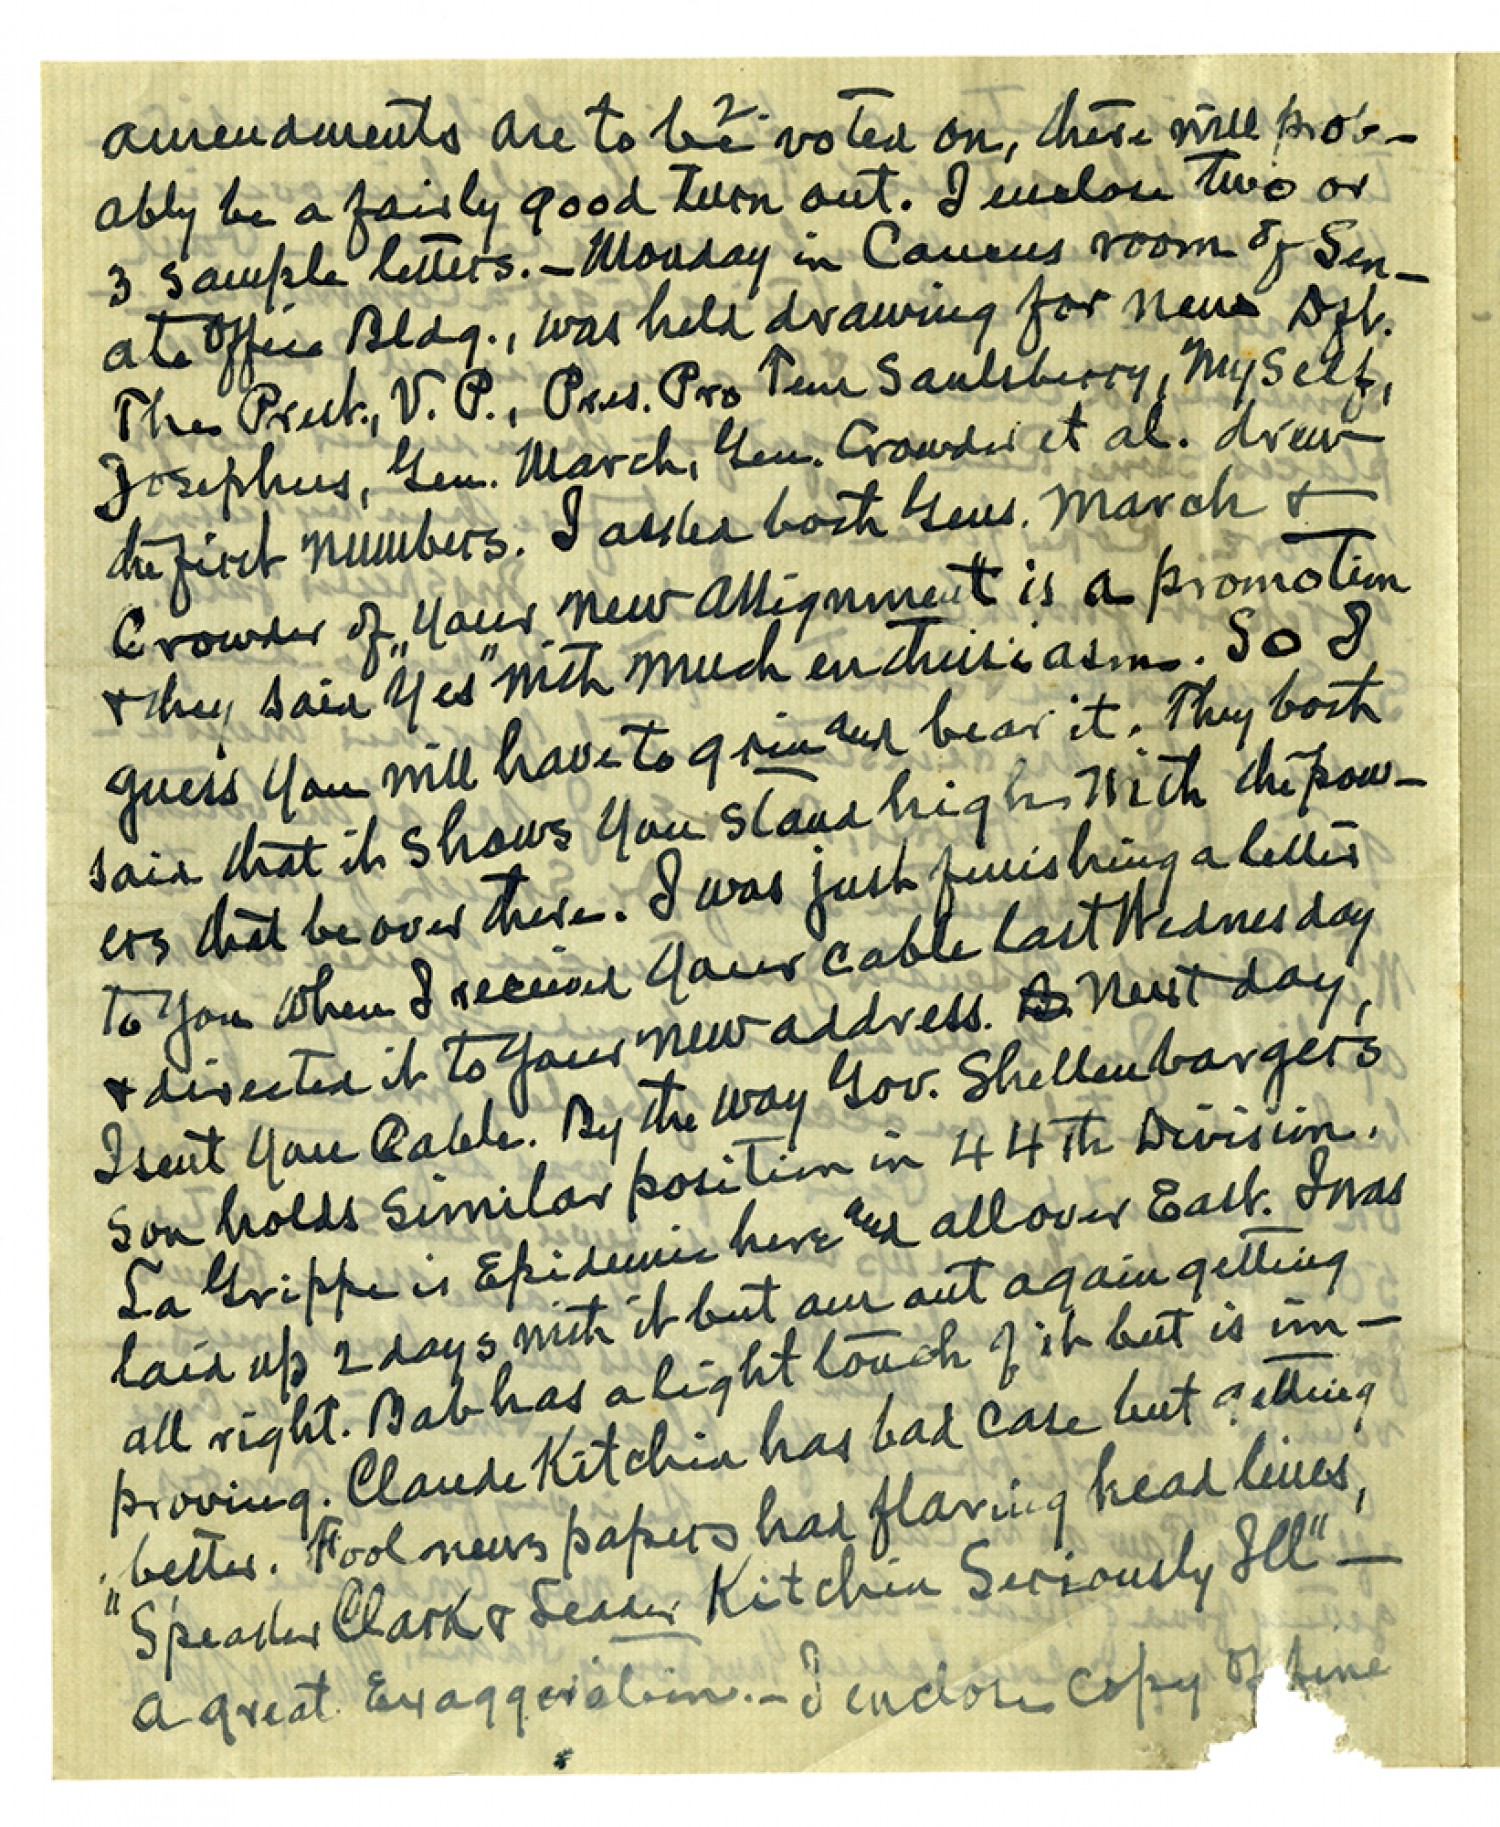 2.
amendments are to be voted on, there will prob-
ably be a fairly good turn out. I enclose two or
3 sample letters. - Monday in Caucus room of Sen-
ate Office Bldg., was held drawing for new Dft.
The Prest., V. P., Pres. Pro Tem Saulsberry, Myself,
Josephus, Gen. March, Gen. Crowder et al. drew
the first numbers. I asked both Gens. March &
Crowder if "Your new assignment" is a promotion
& they said "Yes" with much enthusiasm. So I
guess you will have to grin and bear it. They both
said that it shows you stand high with the pow-
ers that be over there. I was just finishing a letter
to you when I received your cable last Wednesday
& directed it to your new address. Next day,
I sent you Cable. By the way Gov. Shellenbargers
son holds similar position in 44th Division.
La Grippe is Epidemic here and all over East. I was
laid up 2 days with it but am out again getting
all right. Bab has a light touch of it but is im-
proving. Claude Kitchin has bad case but getting
better. Fool news papers had flaring head lines,
"Speaker Clark & Leader Kitchin Seriously Ill" -
a great Exaggeration. - I enclose copy of fine